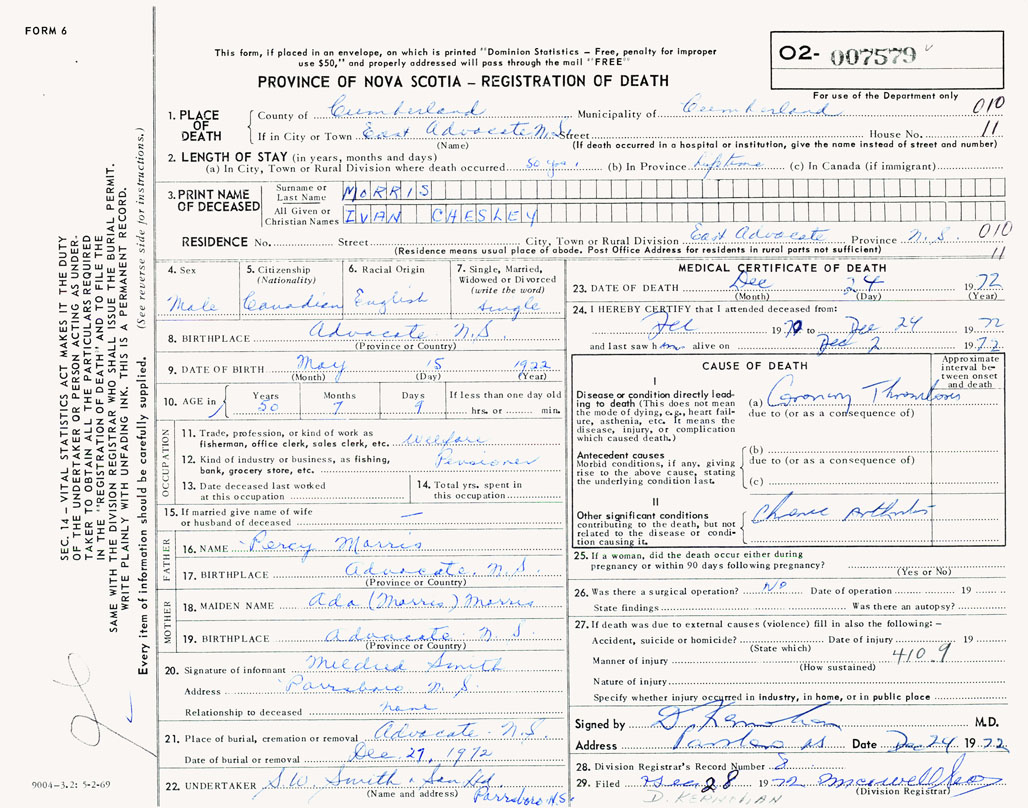 FORM 6
This form, if placed in an envelope, on which is printed "Dominion Statistics – Free, penalty for improper
use $50," and properly addressed will pass through the mail "FREE"
PROVINCE OF NOVA SCOTIA – REGISTRATION OF DEATH
O2- 007579
For use of the Department only
1. PLACE OF DEATH
County of Cumberland Municipality of Cumberland 010
If in City or Town East Advocate N.S. Street House No. 11
(Name) (If death occurred in a hospital or institution, give the name instead of street and number)
2. LENGTH OF STAY (in years, months and days)
(a) In City, Town or Rural Division where death occurred 50 yrs. (b) In Province lifetime (c) In Canada (if immigrant)
3. PRINT NAME OF DECEASED
Surname or Last Name MORRIS
All Given or Christian Names IVAN CHESLEY
RESIDENCE No. Street City, Town or Rural Division East Advocate Province N.S. 010
(Residence means usual place of abode. Post Office Address for residents in rural parts not sufficient) 11
4. Sex Male
5. Citizenship (Nationality) Canadian
6. Racial Origin English
7. Single, Married, Widowed or Divorced (write the word) Single
8. BIRTHPLACE Advocate N.S.
(Province or Country)
9. DATE OF BIRTH May 15 1922
(Month) (Day) (Year)
10. AGE in Years 50 Months 7 Days 9 If less than one day old hrs. or min.
OCCUPATION
11. Trade, profession, or kind of work as fisherman, office clerk, sales clerk, etc. Welfare
12. Kind of industry or business, as fishing, bank, grocery store, etc. Pensioner
13. Date deceased last worked at this occupation
14. Total yrs. spent in this occupation
15. If married give name of wife or husband of deceased —
FATHER
16. NAME Percy Morris
17. BIRTHPLACE Advocate, N.S.
(Province or Country)
MOTHER
18. MAIDEN NAME Ada (Morris) Morris
19. BIRTHPLACE Advocate N.S.
(Province or Country)
20. Signature of informant Mildred Smith
Address Parrsboro N.S.
Relationship to deceased none
21. Place of burial, cremation or removal Advocate N.S.
Date of burial or removal Dec. 27, 1972
22. UNDERTAKER S.W. Smith & Son Ltd
(Name and address) Parrsboro N.S.
MEDICAL CERTIFICATE OF DEATH
23. DATE OF DEATH Dec 24 1972
(Month) (Day) (Year)
24. I HEREBY CERTIFY that I attended deceased from:
1970 to Dec 24 1972
and last saw him alive on Dec 2 1972
CAUSE OF DEATH
Approximate interval between onset and death
I
Disease or condition directly leading to death (This does not mean the mode of dying, e.g., heart failure, asthenia, etc. It means the disease, injury, or complication which caused death.)
(a) Coronary Thrombosis
due to (or as a consequence of)
Antecedent causes
Morbid conditions, if any, giving rise to the above cause, stating the underlying condition last.
(b)
due to (or as a consequence of)
(c)
II
Other significant conditions contributing to the death, but not related to the disease or condition causing it.
Chronic Arthritis
25. If a woman, did the death occur either during pregnancy or within 90 days following pregnancy?
(Yes or No)
26. Was there a surgical operation? No Date of operation 19
State findings Was there an autopsy?
27. If death was due to external causes (violence) fill in also the following: –
Accident, suicide or homicide? Date of injury 19
(State which)
Manner of injury 410.9
(How sustained)
Nature of injury
Specify whether injury occurred in industry, in home, or in public place
Signed by D. Kernohan M.D.
Address Date Dec 24 1972
28. Division Registrar's Record Number 8
29. Filed Dec 28 1972
(Division Registrar)
D. KERNOHAN
SEC. 14 – VITAL STATISTICS ACT MAKES IT THE DUTY
OF THE UNDERTAKER OR PERSON ACTING AS UNDER-
TAKER TO OBTAIN ALL THE PARTICULARS REQUIRED
IN THE "REGISTRATION OF DEATH" AND TO FILE THE
SAME WITH THE DIVISION REGISTRAR WHO SHALL ISSUE THE BURIAL PERMIT.
WRITE PLAINLY WITH UNFADING INK. THIS IS A PERMANENT RECORD.
Every item of information should be carefully supplied. (See reverse side for instructions.)
9004-3.2: 5-2-69